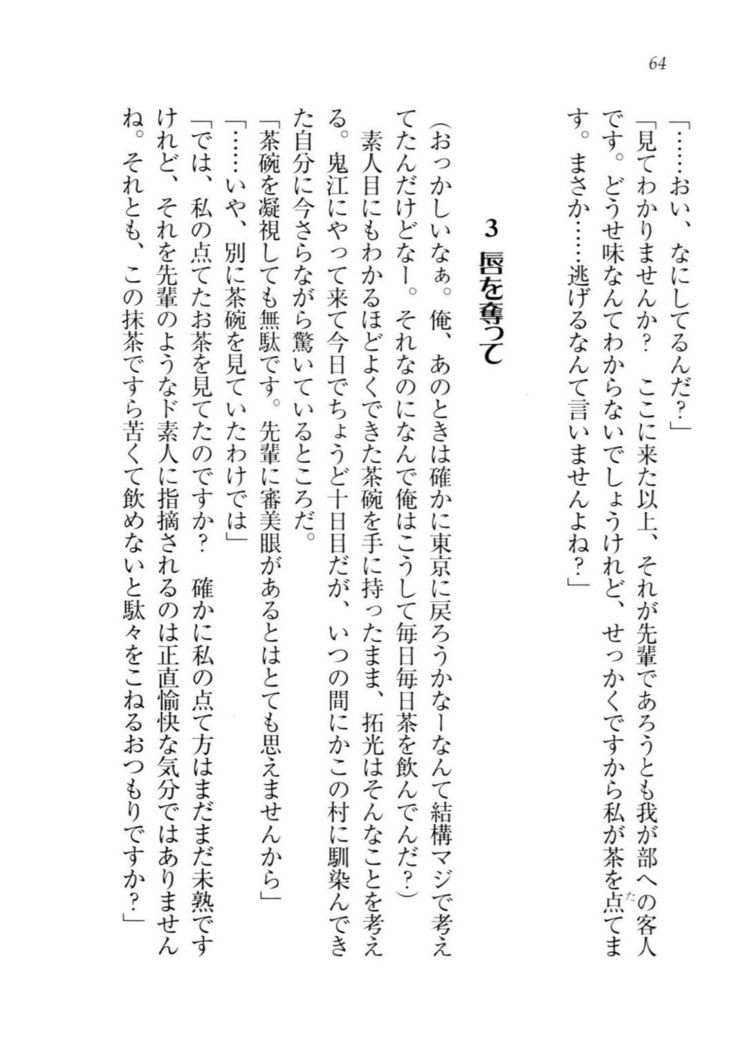 64
「……おい、なにしてるんだ？」
「見てわかりませんか？　ここに来た以上、それが先輩であろうとも我が部への客人
です。どうせ味なんてわからないでしょうけれど、せっかくですから私が茶を点てま
す。まさか……逃げるなんて言いませんよね？」
3 唇を奪って
（おっかしいなぁ。俺、あのときは確かに東京に戻ろうかなーなんて結構マジで考え
てたんだけどなー。それなのになんで俺はこうして毎日毎日茶を飲んでんだ？）
　素人目にもわかるほどよくできた茶碗を手に持ったまま、拓光はそんなことを考え
る。鬼江にやって来て今日でちょうど十日目だが、いつの間にかこの村に馴染んでき
た自分に今さらながら驚いているところだ。
「茶碗を凝視しても無駄です。先輩に審美眼があるとはとても思えませんから」
「……いや、別に茶碗を見ていたわけでは」
「では、私の点てたお茶を見てたのですか？　確かに私の点て方はまだまだ未熟です
けれど、それを先輩のようなド素人に指摘されるのは正直愉快な気分ではありません
ね。それとも、この抹茶ですら苦くて飲めないと駄々をこねるおつもりですか？」